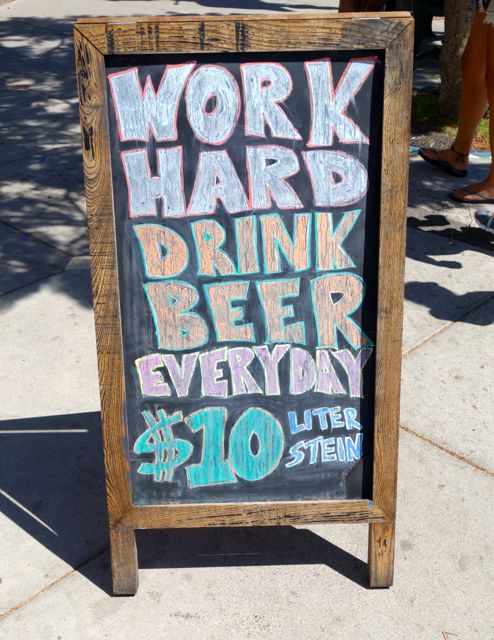 WORK
HARD
DRINK
BEER
EVERYDAY
$10 LITER
STEIN